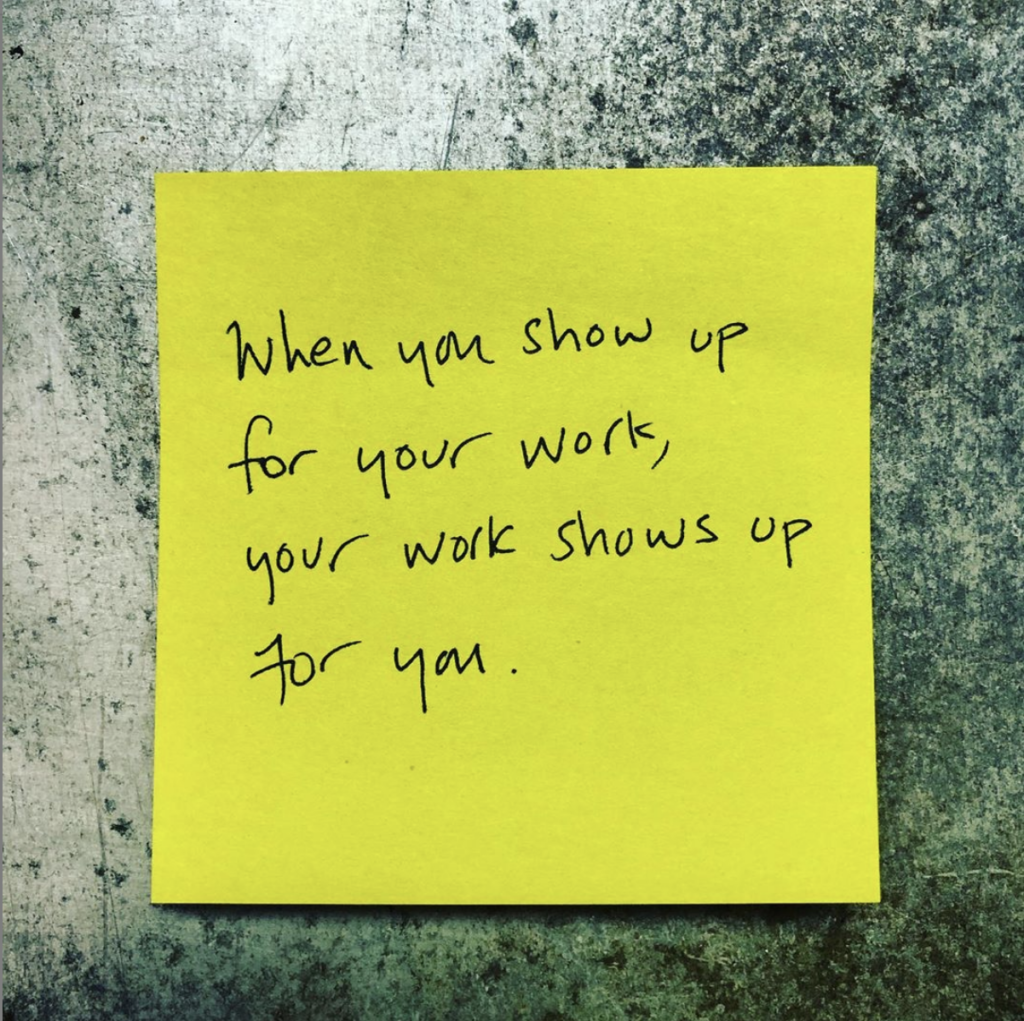 When you show up
for your work,
your work shows up
for you.